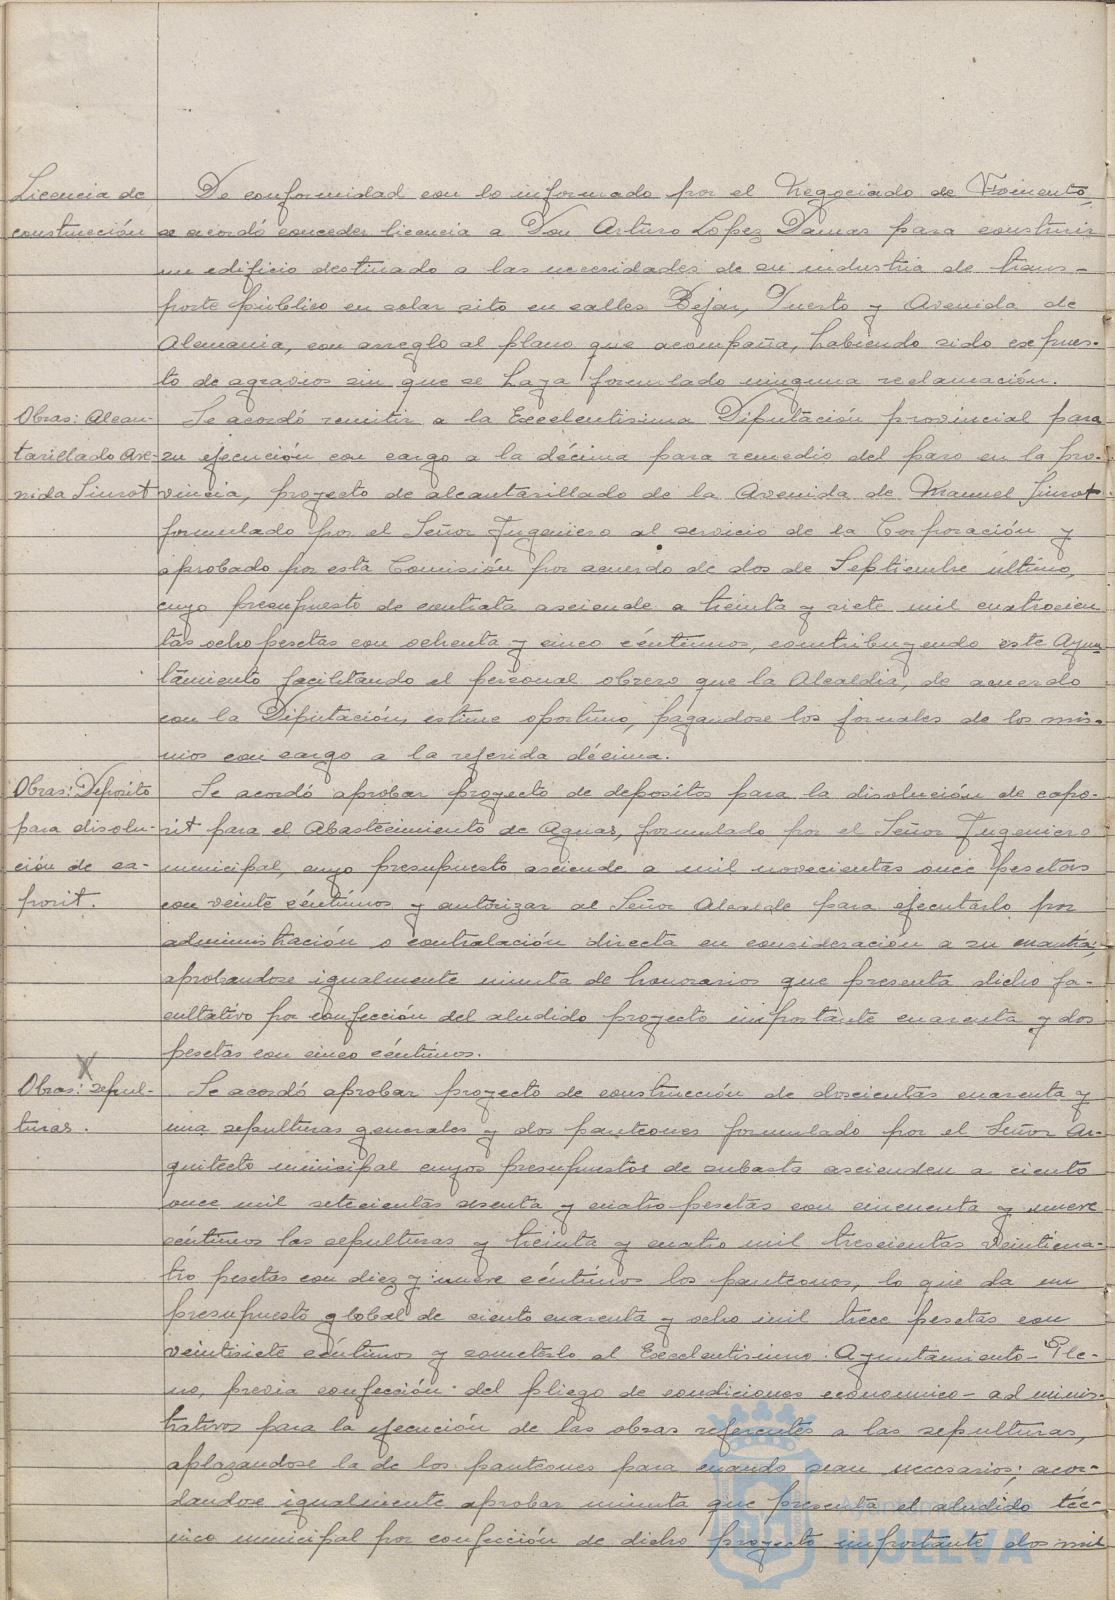 Licencia de
construcción
De conformidad con lo informado por el Negociado de Fomento,
se acordó conceder licencia a Don Arturo López Damas para construir
un edificio destinado a las necesidades de su industria de trans-
porte público en solar sito en calles Bejar, Puerto y Avenida de
Alemania, con arreglo al plano que acompaña, habiendo sido expues-
to de agravios sin que se haya formulado ninguna reclamación.
Obras: Alcan-
tarillado Ave-
nida Siurot
Se acordó remitir a la Excelentisima Diputación provincial para
su ejecución con cargo a la décima para remedio del paro en la pro-
vincia, proyecto de alcantarillado de la Avenida de Manuel Siurot
formulado por el Señor Ingeniero al servicio de la Corporación y
aprobado por esta Comisión por acuerdo de dos de Septiembre último,
cuyo presupuesto de contrata asciende a treinta y siete mil cuatrocien
tas ocho pesetas con ochenta y cinco céntimos, contribuyendo este Ayun
tamiento facilitando el personal obrero que la Alcaldia, de acuerdo
con la Diputación, estime oportuno, pagandose los jornales de los mis-
mos con cargo a la referida décima.
Obras: Depósito
para disolu-
ción de ca-
porit.
Se acordó aprobar proyecto de depositos para la disolución de capo-
rit para el Abastecimiento de Aguas, formulado por el Señor Ingeniero
municipal, cuyo presupuesto asciende a mil novecientas once pesetas
con veinte céntimos y autorizar al Señor Alcalde para ejecutarlo por
administración o contratación directa en consideración a su cuantía;
aprobandose igualmente minuta de honorarios que presenta dicho fa-
cultativo por confección del aludido proyecto importante cuarenta y dos
pesetas con cinco céntimos.
X
Obras: sepul-
turas.
Se acordó aprobar proyecto de construcción de doscientas cuarenta y
una sepulturas generales y dos panteones formulado por el Señor Ar-
quitecto municipal cuyos presupuestos de subasta ascienden a ciento
once mil setecientas sesenta y cuatro pesetas con cincuenta y nueve
céntimos las sepulturas y treinta y cuatro mil trescientas veinticua-
tro pesetas con diez y nueve céntimos los panteones, lo que da un
presupuesto global de ciento cuarenta y ocho mil trece pesetas con
veintisiete céntimos y someterlo al Excelentisimo Ayuntamiento-Ple-
no, previa confección del pliego de condiciones economico-adminis-
trativos para la ejecución de las obras referentes a las sepulturas,
aplazandose la de los panteones para cuando sean necesarios; acor-
dandose igualmente aprobar minuta que presenta el aludido téc-
nico municipal por confección de dicho proyecto importante dos mil
Ayuntamiento de
HUELVA